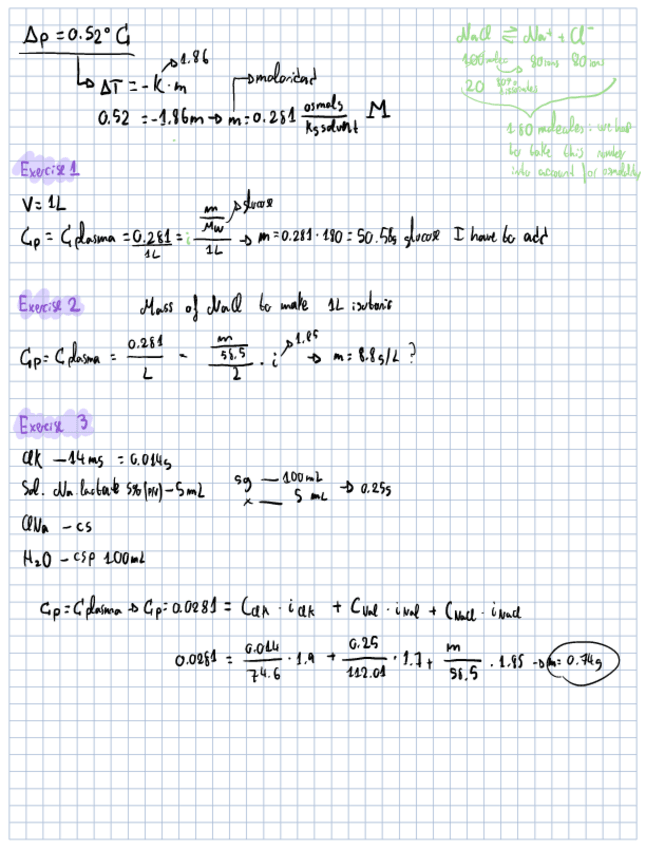 Δp = 0.52° C
1.86
ΔT = -K·m
molaridad
0.52 = -1.86m → m = 0.281 osmols / Kg solvent M
NaCl ⇌ Na⁺ + Cl⁻
100 molec 80 ions 80 ions
20
180 molecules: we had
to take this number
into account for osmolality
Exercise 1
V = 1L
Cp = Cplasma = 0.281 / 1L = i m / Mw / 1L → m = 0.281 · 180 = 50.58g glucose I have to add
glucose
Exercise 2 Mass of NaCl to make 1L isotonic
Cp = Cplasma = 0.281 / L - m / 58.5 / 2 · i → m = 8.8g/L ?
1.85
Exercise 3
ClK - 14mg = 0.014g
Sol. Na lactate 5% (P/V) - 5mL
5g — 100mL
x — 5 mL → 0.25g
ClNa - cs
H₂O - csp 100mL
Cp = Cplasma → Cp = 0.0281 = CClK · iClK + CNaL · iNaL + CNaCl · iNaCl
0.0281 = 0.014 / 74.6 · 1.9 + 0.25 / 112.01 · 1.7 + m / 58.5 · 1.85 → m = 0.74g